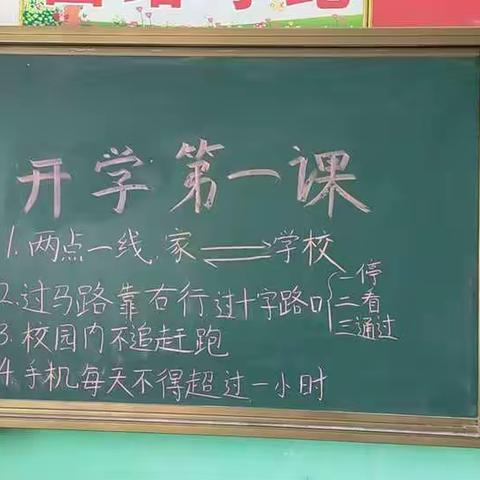 开学第一课
1.两点一线.家⇌学校
2.过马路靠右行过十字路口{一停
二看
三通过
3.校园内不追赶跑
4.手机每天不得超过一小时